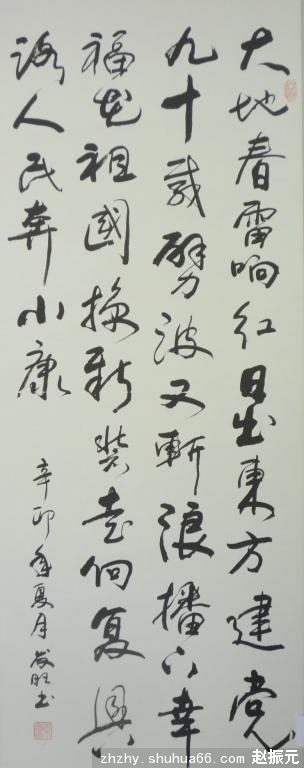 大地春雷响红日出東方建党
九十载劈波又斬浪播下幸
福花祖國换新裝走向复興
路人民奔小康
辛卯年夏月书
zhzhy.shuhua66.com 赵振元